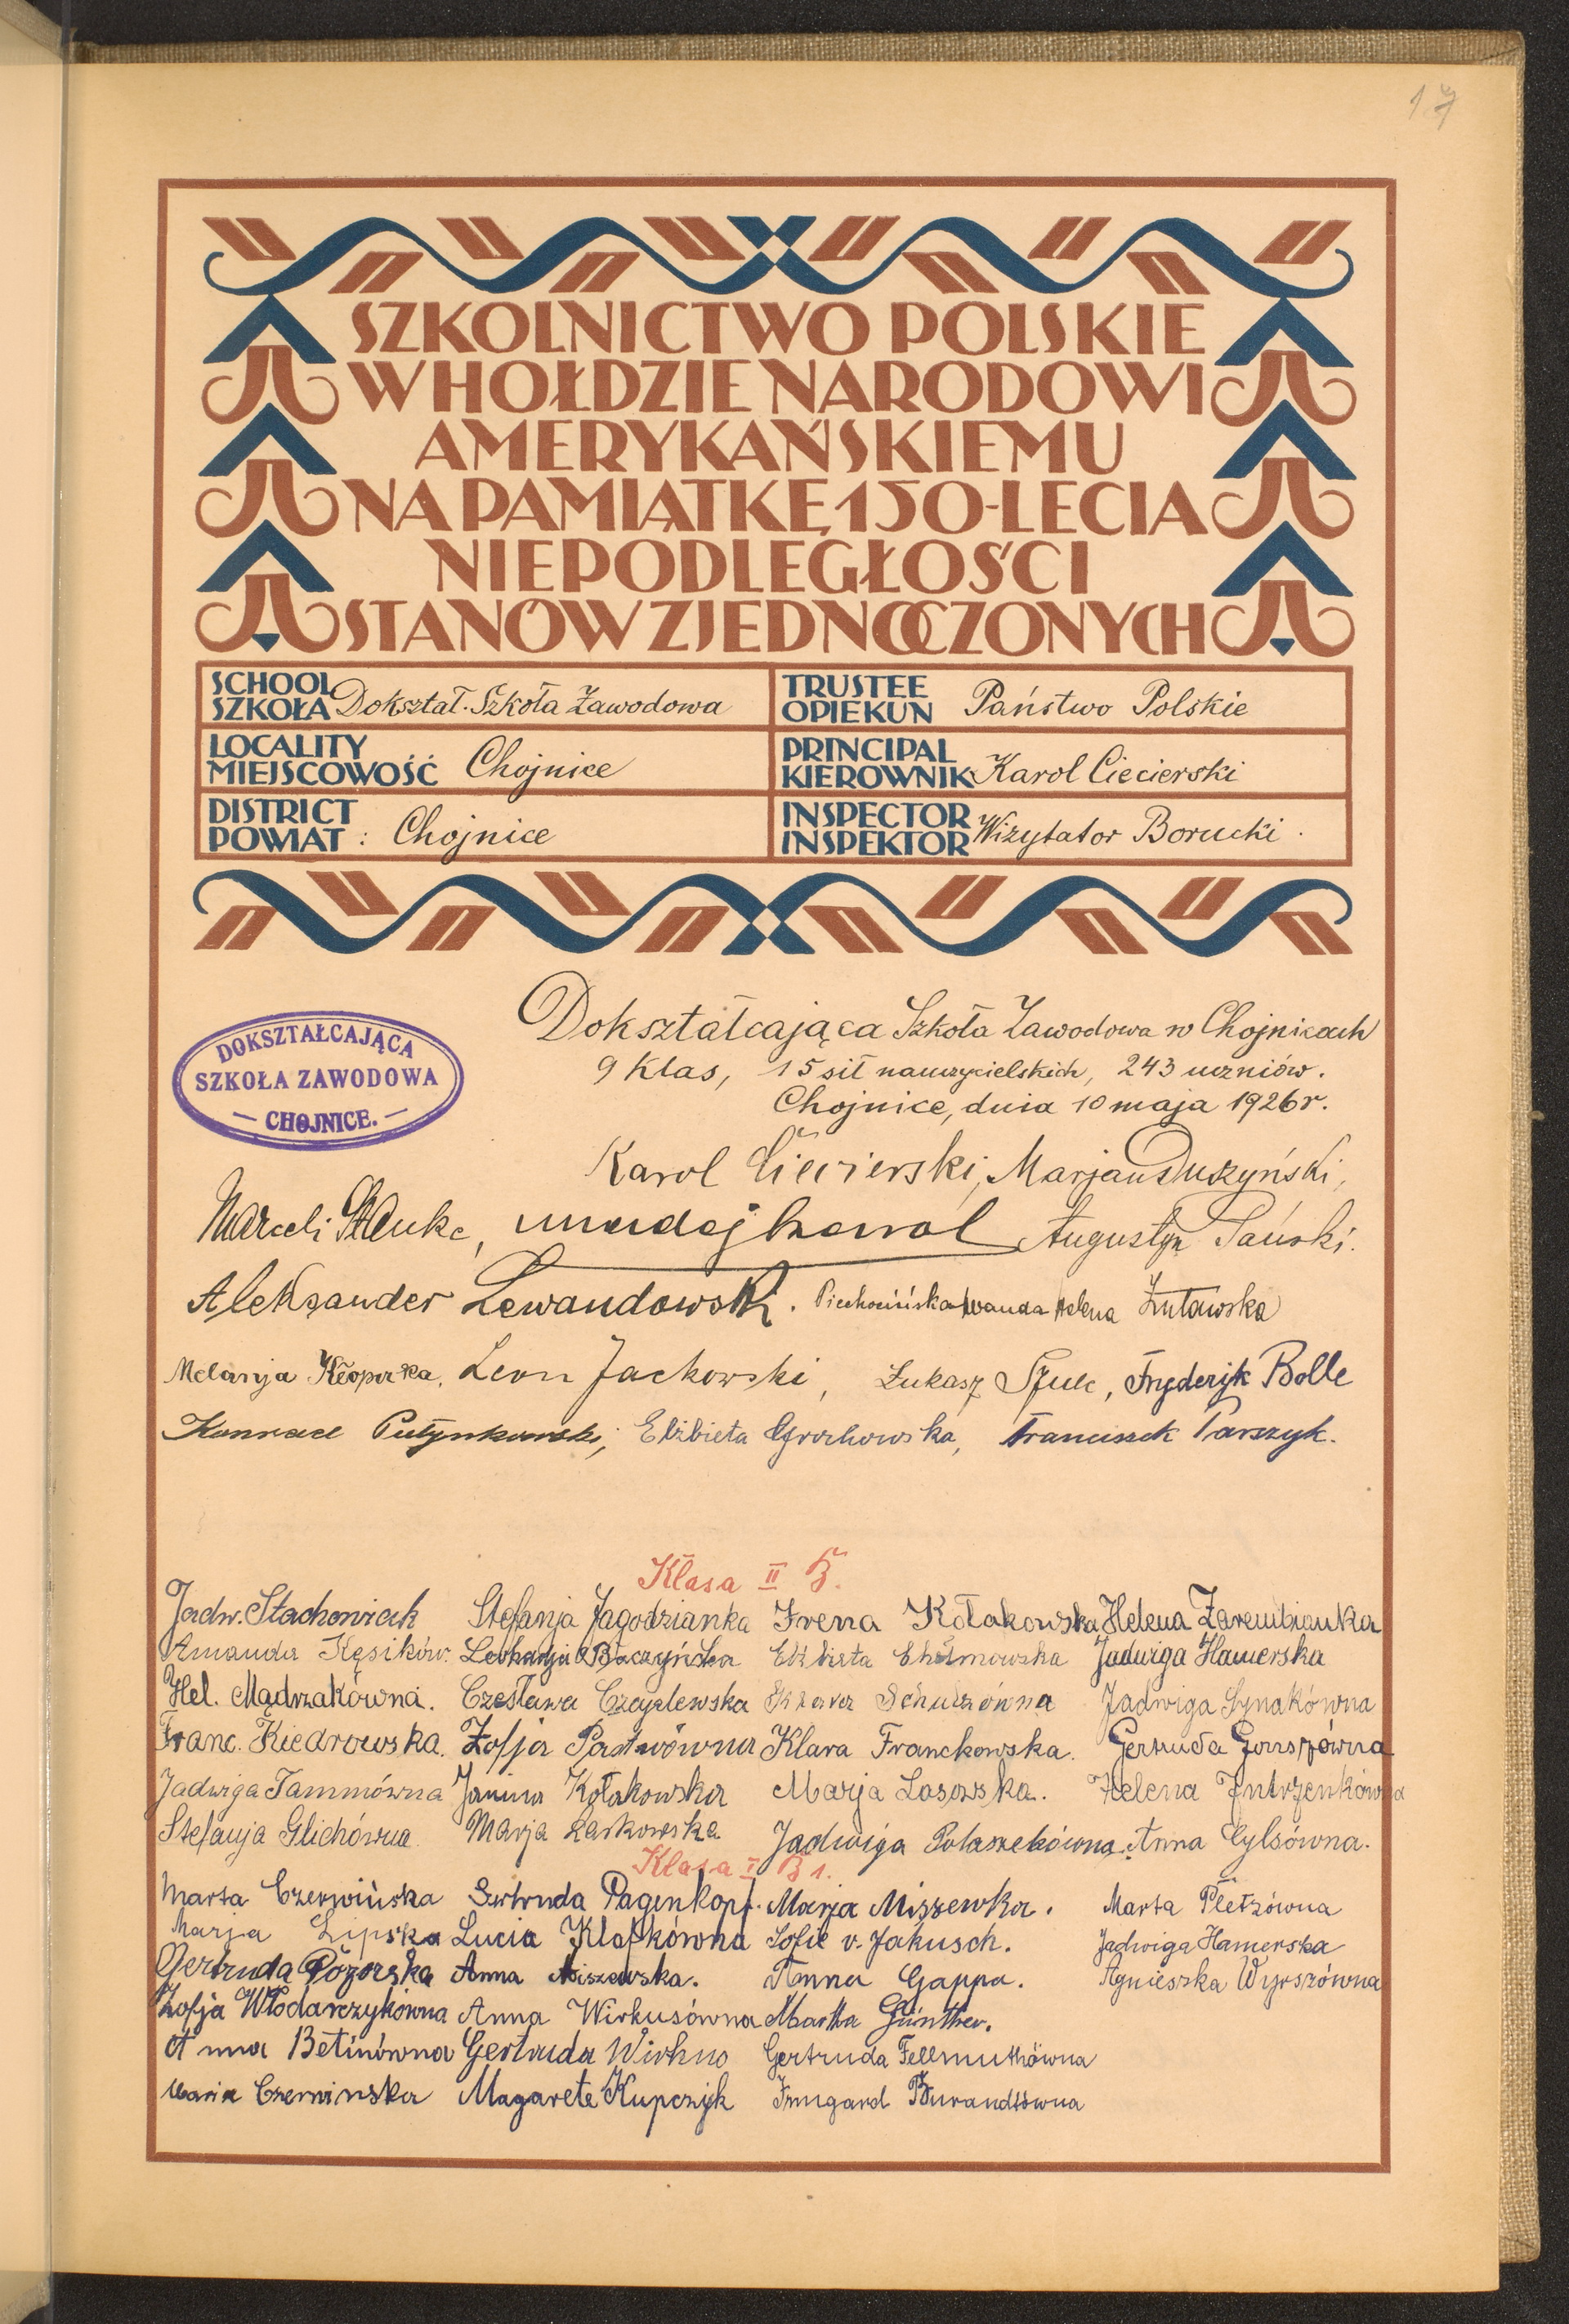 17
SZKOLNICTWO POLSKIE
W HOŁDZIE NARODOWI
AMERYKAŃSKIEMU
NA PAMIĄTKĘ 150-LECIA
NIEPODLEGŁOŚCI
STANÓW ZJEDNOCZONYCH
SCHOOL
SZKOŁA Dokształ. Szkoła Zawodowa
TRUSTEE
OPIEKUN Państwo Polskie
LOCALITY
MIEJSCOWOŚĆ Chojnice
PRINCIPAL
KIEROWNIK Karol Ciecierski
DISTRICT
POWIAT : Chojnice
INSPECTOR
INSPEKTOR Wizytator Borucki.
DOKSZTAŁCAJĄCA
SZKOŁA ZAWODOWA
— CHOJNICE. —
Dokształcająca Szkoła Zawodowa w Chojnicach
9 klas, 15 sił nauczycielskich, 243 uczniów.
Chojnice, dnia 10 maja 1926 r.
Karol Ciecierski, Marjan Duszyński,
Marceli Karol Augustyn
Aleksander Lewandowski. Wanda Helena Żutawska
Melanja Leon Jackowski, Łukasz Szulc, Fryderyk Bolle
Konrad Elżbieta Grochowska, Franciszek Parszyk.
Klasa II B.
Jadw. Stachowiak Stefanja Jagodzianka Irena Kołakowska Helena Zarembianka
Amanda Kęsików. Leokadja Baczyńska Elżbieta Jadwiga Hamerska
Hel. Mądrzakówna. Czesława Czaplewska Klara Schulzówna Jadwiga Synakówna
Franc. Kiedrowska. Zofja Pastwówna Klara Franckowska. Gertruda
Jadwiga Tammówna Janina Kołakowska Marja Lasowska. Helena Jutrzenkówna
Stefanja Glichówna Marja Laskowska Jadwiga Polaszekówna. Anna Cylsówna.
Klasa I B 1.
Marta Czerwińska Gertruda Pagenkopf. Marja Miszewka. Marta Pletzówna
Marja Lipska Lucia Klapkówna Sofie v. Jakusch. Jadwiga Hamerska
Gertruda Pozorska Anna Miszewska. Anna Gappa. Agnieszka Wyrszówna
Zofja Włodarczykówna Anna Wirkusówna Martha Günther.
Anna Betinówna Gertruda Wirkus Gertruda Fellmuthówna
Maria Czerwinska Magarete Kupczyk Irmgard Burandtówna